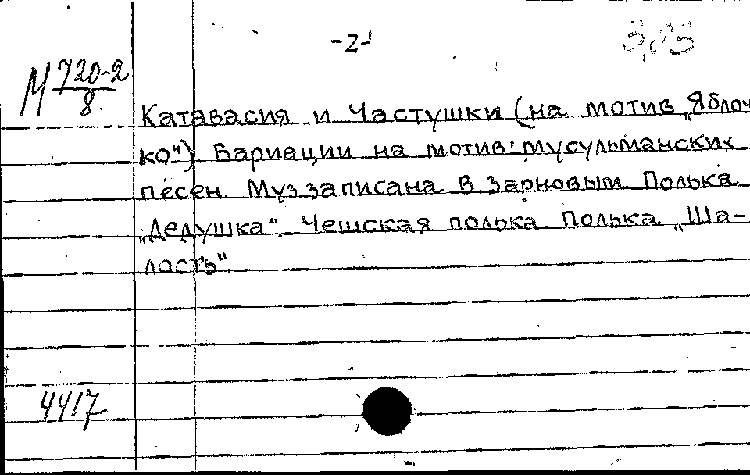 -2-
М 720-2
8
Катавасия и Частушки (на мотив „Яблоч
ко") Вариации на мотив: мусульманских
песен. Муз записана В Зарновым Полька
„Дедушка". Чешская полька Полька „Ша-
лость"
4417